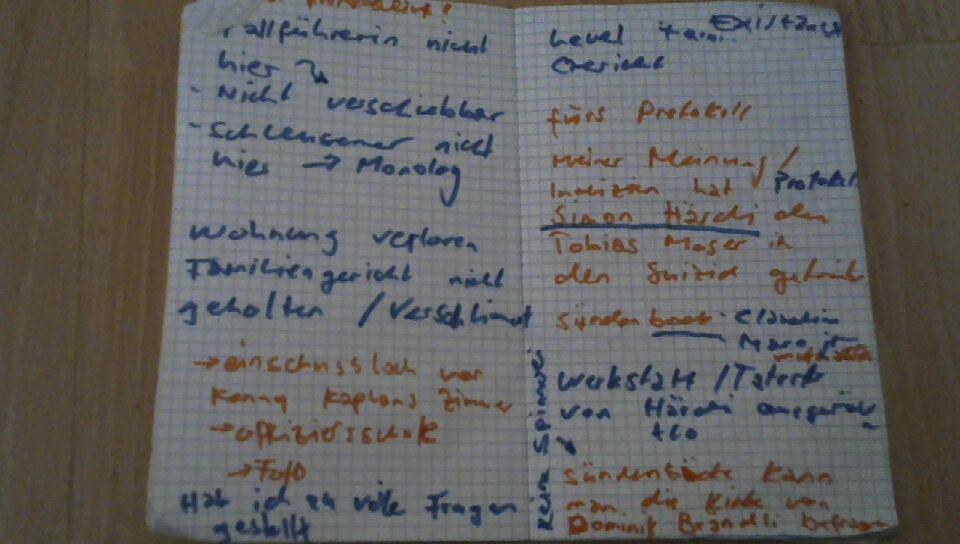 fallführerin nicht
hier
- Nicht verschiebbar
- Schleusener nicht
hier → Monolog
Wohnung verloren
Familiengericht nicht
geholfen / verschlimmt
→ einschussloch vor
Kenny Kaplons Zimmer
→ offiziersschule
→ Foto
Hab ich zu viele Fragen
gestellt
Existänz
fürs Protokoll
Meiner Meinung /
Indizien hat / Protokoll
Simon Härdi den
Tobias Moser in
den Suizid
Sündenbock: Claudia
Werkstatt / Tatort
von Härdi
+ Co
Keine Spinnerei
Sündenböcke kann
man die Kinder von
Dominik Brändli befragen